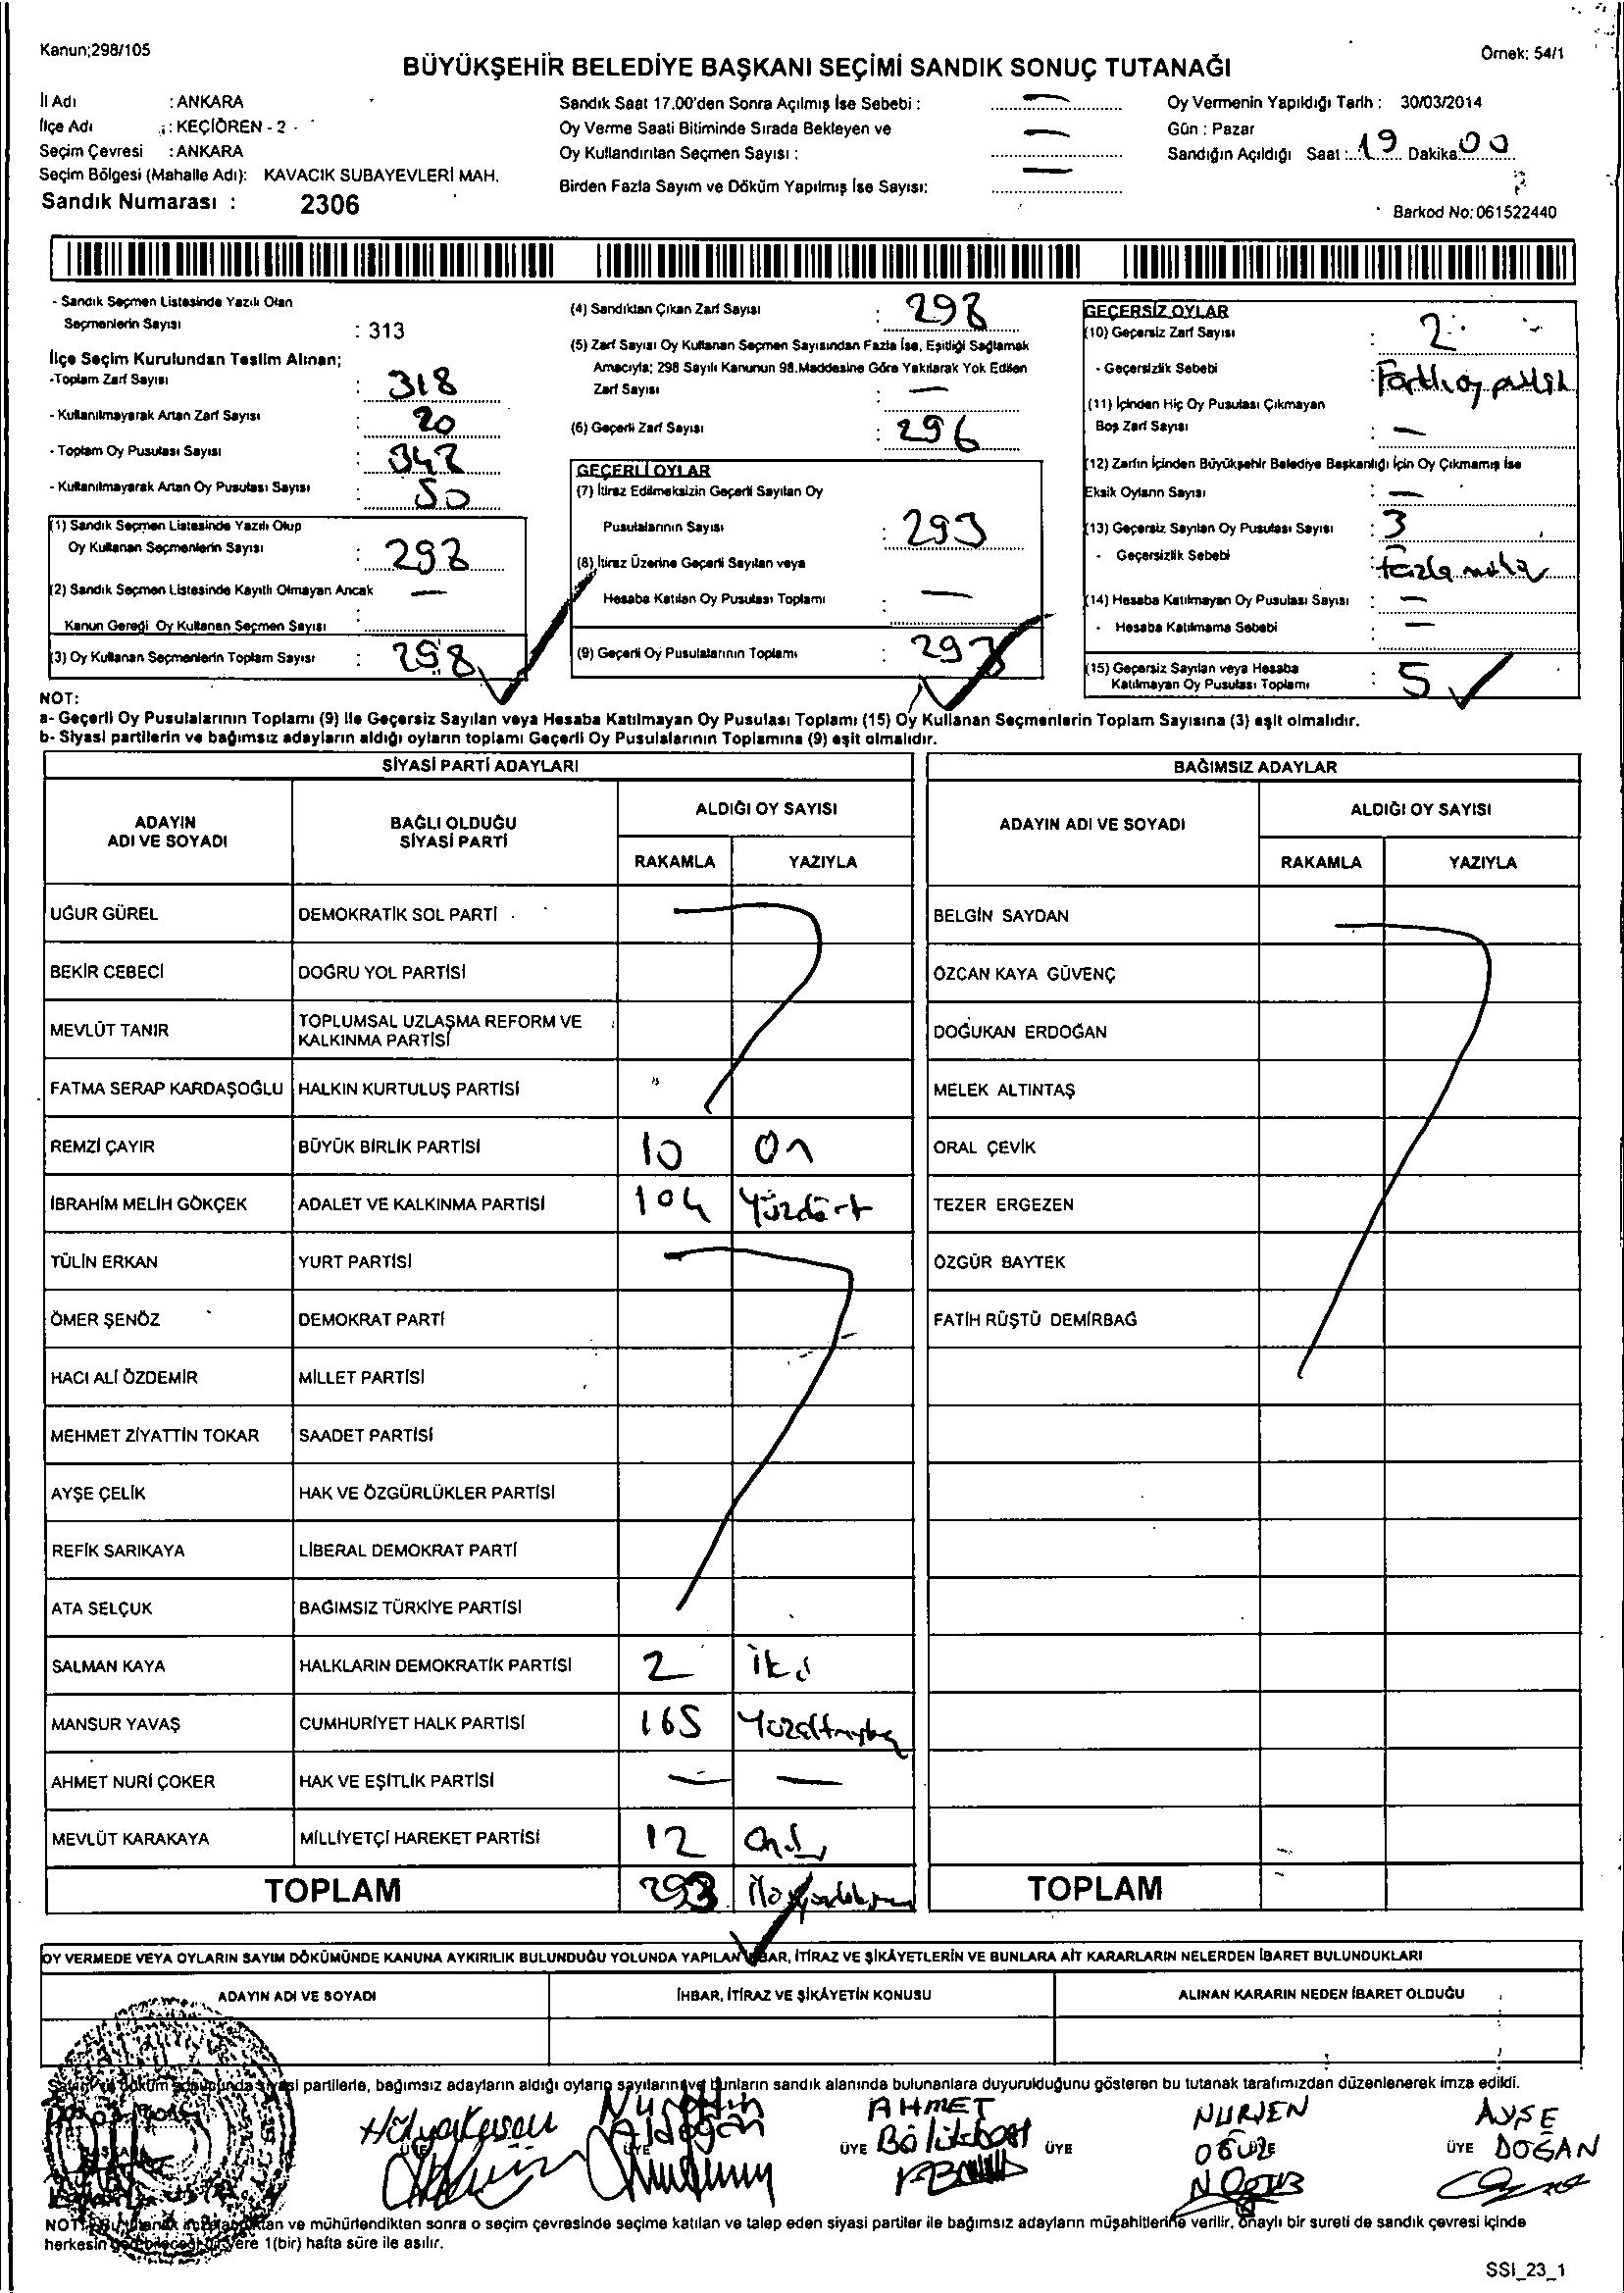 Kanun;298/105
Örnek: 54/1
BÜYÜKŞEHİR BELEDİYE BAŞKANI SEÇİMİ SANDIK SONUÇ TUTANAĞI
İl Adı : ANKARA
İlçe Adı : KEÇİÖREN - 2
Seçim Çevresi : ANKARA
Seçim Bölgesi (Mahalle Adı): KAVACIK SUBAYEVLERİ MAH.
Sandık Numarası : 2306
Sandık Saat 17.00'den Sonra Açılmış İse Sebebi : —
Oy Verme Saati Bitiminde Sırada Bekleyen ve
Oy Kullandırılan Seçmen Sayısı : —
Birden Fazla Sayım ve Döküm Yapılmış İse Sayısı: —
Oy Vermenin Yapıldığı Tarih : 30/03/2014
Gün : Pazar
Sandığın Açıldığı Saat : 19 Dakika: 00
Barkod No: 061522440
- Sandık Seçmen Listesinde Yazılı Olan
Seçmenlerin Sayısı : 313
İlçe Seçim Kurulundan Teslim Alınan;
-Toplam Zarf Sayısı : 318
- Kullanılmayarak Artan Zarf Sayısı : 20
- Toplam Oy Pusulası Sayısı : 348
- Kullanılmayarak Artan Oy Pusulası Sayısı : 50
(1) Sandık Seçmen Listesinde Yazılı Olup
Oy Kullanan Seçmenlerin Sayısı : 298
(2) Sandık Seçmen Listesinde Kayıtlı Olmayan Ancak
Kanun Gereği Oy Kullanan Seçmen Sayısı : —
(3) Oy Kullanan Seçmenlerin Toplam Sayısı : 298
(4) Sandıktan Çıkan Zarf Sayısı : 298
(5) Zarf Sayısı Oy Kullanan Seçmen Sayısından Fazla İse, Eşitliği Sağlamak
Amacıyla; 298 Sayılı Kanunun 98.Maddesine Göre Yakılarak Yok Edilen
Zarf Sayısı : —
(6) Geçerli Zarf Sayısı : 296
GEÇERLİ OYLAR
(7) İtiraz Edilmeksizin Geçerli Sayılan Oy
Pusulalarının Sayısı : 293
(8) İtiraz Üzerine Geçerli Sayılan veya
Hesaba Katılan Oy Pusulası Toplamı : —
(9) Geçerli Oy Pusulalarının Toplamı : 293
GEÇERSİZ OYLAR
(10) Geçersiz Zarf Sayısı : 2
- Geçersizlik Sebebi : Farklı oy
(11) İçinden Hiç Oy Pusulası Çıkmayan
Boş Zarf Sayısı : —
(12) Zarfın İçinden Büyükşehir Belediye Başkanlığı İçin Oy Çıkmamış İse
Eksik Oyların Sayısı : —
(13) Geçersiz Sayılan Oy Pusulası Sayısı : 3
- Geçersizlik Sebebi : Fazla
(14) Hesaba Katılmayan Oy Pusulası Sayısı : —
- Hesaba Katılmama Sebebi : —
(15) Geçersiz Sayılan veya Hesaba
Katılmayan Oy Pusulası Toplamı : 5
NOT:
a- Geçerli Oy Pusulalarının Toplamı (9) ile Geçersiz Sayılan veya Hesaba Katılmayan Oy Pusulası Toplamı (15) Oy Kullanan Seçmenlerin Toplam Sayısına (3) eşit olmalıdır.
b- Siyasi partilerin ve bağımsız adayların aldığı oyların toplamı Geçerli Oy Pusulalarının Toplamına (9) eşit olmalıdır.
SİYASİ PARTİ ADAYLARI
ADAYIN ADI VE SOYADI BAĞLI OLDUĞU SİYASİ PARTİ ALDIĞI OY SAYISI
RAKAMLA YAZIYLA
UĞUR GÜREL DEMOKRATİK SOL PARTİ
BEKİR CEBECİ DOĞRU YOL PARTİSİ
MEVLÜT TANIR TOPLUMSAL UZLAŞMA REFORM VE KALKINMA PARTİSİ
FATMA SERAP KARDAŞOĞLU HALKIN KURTULUŞ PARTİSİ
REMZİ ÇAYIR BÜYÜK BİRLİK PARTİSİ 10 On
İBRAHİM MELİH GÖKÇEK ADALET VE KALKINMA PARTİSİ 104 Yüzdört
TÜLİN ERKAN YURT PARTİSİ
ÖMER ŞENÖZ DEMOKRAT PARTİ
HACI ALİ ÖZDEMİR MİLLET PARTİSİ
MEHMET ZİYATTİN TOKAR SAADET PARTİSİ
AYŞE ÇELİK HAK VE ÖZGÜRLÜKLER PARTİSİ
REFİK SARIKAYA LİBERAL DEMOKRAT PARTİ
ATA SELÇUK BAĞIMSIZ TÜRKİYE PARTİSİ
SALMAN KAYA HALKLARIN DEMOKRATİK PARTİSİ 2 İki
MANSUR YAVAŞ CUMHURİYET HALK PARTİSİ 165 Yüzaltmışbeş
AHMET NURİ ÇOKER HAK VE EŞİTLİK PARTİSİ — —
MEVLÜT KARAKAYA MİLLİYETÇİ HAREKET PARTİSİ 12 Oniki
TOPLAM 293
BAĞIMSIZ ADAYLAR
ADAYIN ADI VE SOYADI ALDIĞI OY SAYISI
RAKAMLA YAZIYLA
BELGİN SAYDAN
ÖZCAN KAYA GÜVENÇ
DOĞUKAN ERDOĞAN
MELEK ALTINTAŞ
ORAL ÇEVİK
TEZER ERGEZEN
ÖZGÜR BAYTEK
FATİH RÜŞTÜ DEMİRBAĞ
TOPLAM
OY VERMEDE VEYA OYLARIN SAYIM DÖKÜMÜNDE KANUNA AYKIRILIK BULUNDUĞU YOLUNDA YAPILAN İHBAR, İTİRAZ VE ŞİKÂYETLERİN VE BUNLARA AİT KARARLARIN NELERDEN İBARET BULUNDUKLARI
ADAYIN ADI VE SOYADI İHBAR, İTİRAZ VE ŞİKÂYETİN KONUSU ALINAN KARARIN NEDEN İBARET OLDUĞU
siyasi partilerle, bağımsız adayların aldığı oyların sayılarını ve bunların sandık alanında bulunanlara duyurulduğunu gösteren bu tutanak tarafımızdan düzenlenerek imza edildi.
ÜYE ÜYE Nurettin
ÜYE AHMET Bölükbaşı
ÜYE NURŞEN OĞUZ
ÜYE AYŞE DOĞAN
NOT: ve mühürlendikten sonra o seçim çevresinde seçime katılan ve talep eden siyasi partiler ile bağımsız adayların müşahitlerine verilir, onaylı bir sureti de sandık çevresi içinde
herkesin yere 1(bir) hafta süre ile asılır.
SSI_23_1